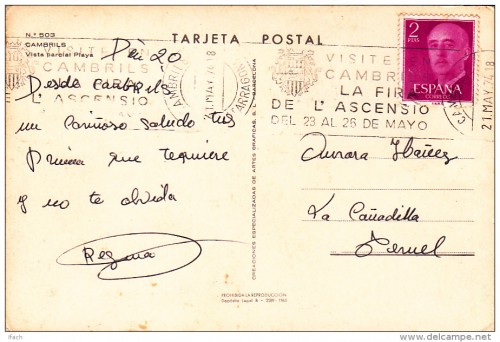 N.º 503
CAMBRILS
Vista parcial Playa
TARJETA POSTAL
VISITEN
CAMBRILS
LA FIRA
DE L'ASCENSIO
DEL 23 AL 26 DE MAYO
21.MAY.74.18
CAMBRILS
TARRAGONA
2
PTAS
ESPAÑA
CORREOS
21.MAY.74.18
Dia 20
Desde Cambrils
un cariñoso saludo tus
prima que te quiere
y no te olvida
Regina
CREACIONES ESPECIALIZADAS DE ARTES GRAFICAS, S. L. BARCELONA
Aurora Ibáñez
La Cañadilla
Teruel
PROHIBIDA LA REPRODUCCION
Depósito Legal
delcampe.net